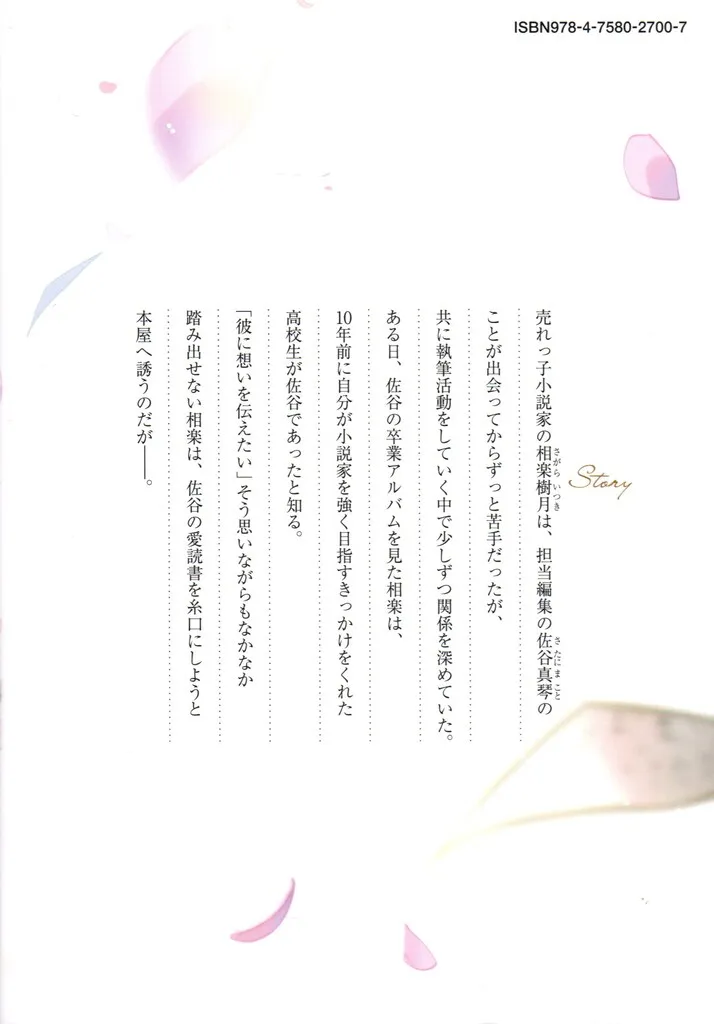 ISBN978-4-7580-2700-7
Story
売れっ子小説家の相楽樹月は、担当編集の佐谷真琴の
さがら いつき
さたに まこと
ことが出会ってからずっと苦手だったが、
共に執筆活動をしていく中で少しずつ関係を深めていた。
ある日、佐谷の卒業アルバムを見た相楽は、
10年前に自分が小説家を強く目指すきっかけをくれた
高校生が佐谷であったと知る。
「彼に想いを伝えたい」そう思いながらもなかなか
踏み出せない相楽は、佐谷の愛読書を糸口にしようと
本屋へ誘うのだが――。